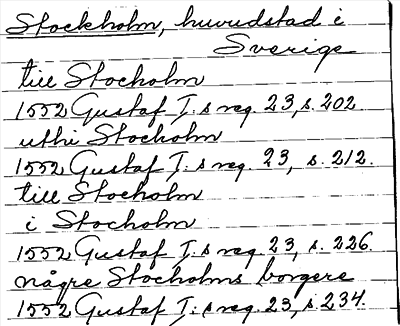 Stockholm, huvudstad i
Sverige
till Stocholm
1552 Gustaf I:s reg. 23, s. 202
uthi Stocholm
1552 Gustaf I:s reg. 23, s. 212.
till Stocholm
i Stocholm
1552 Gustaf I:s reg. 23, s. 226.
någre Stocholms borgere
1552 Gustaf I:s reg. 23, s. 234.